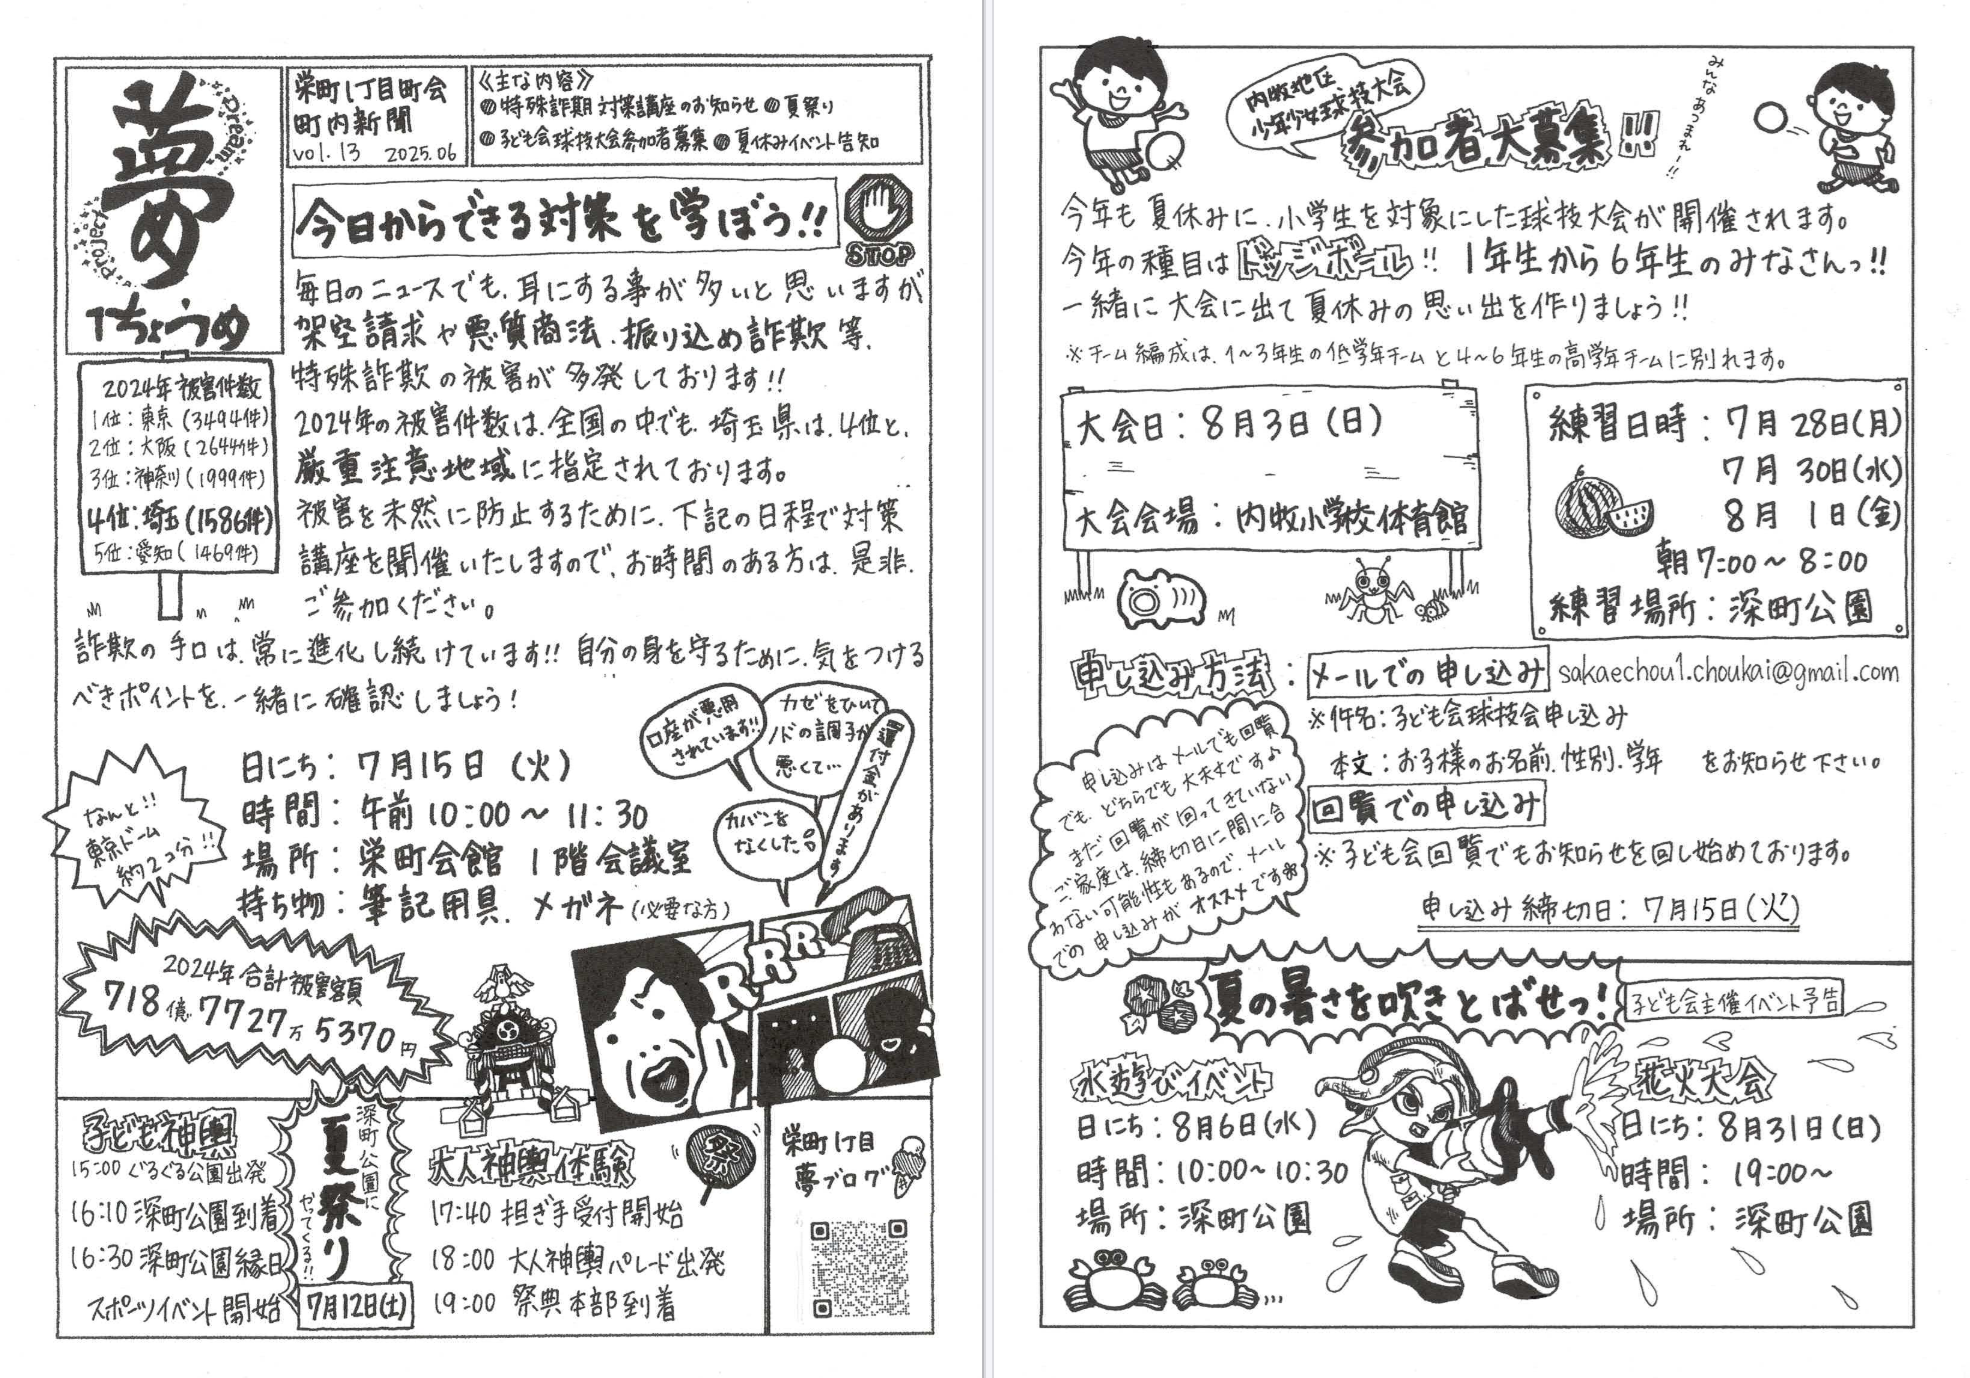 夢
Dream
Project
1ちょうめ
栄町1丁目町会
町内新聞
vol.13 2025.06
《主な内容》
◎特殊詐期対策講座のお知らせ ◎夏祭り
◎子ども会球技大会参加者募集 ◎夏休みイベント告知
今日からできる対策を学ぼう!!
STOP
毎日のニュースでも、耳にする事が多いと思いますが
架空請求や悪質商法、振り込め詐欺等、
特殊詐欺の被害が多発しております!!
2024年の被害件数は、全国の中でも、埼玉県は、4位と、
厳重注意地域に指定されております。
被害を未然に防止するために、下記の日程で対策
講座を開催いたしますので、お時間のある方は、是非、
ご参加ください。
2024年被害件数
1位:東京(3494件)
2位:大阪(2644件)
3位:神奈川(1999件)
4位:埼玉(1586件)
5位:愛知(1469件)
詐欺の手口は、常に進化し続けています!! 自分の身を守るために、気をつける
べきポイントを、一緒に確認しましょう!
日にち:7月15日(火)
時間:午前10:00〜11:30
場所:栄町会館 1階会議室
持ち物:筆記用具、メガネ(必要な方)
口座が悪用
されています!!
カゼをひいて
ノドの調子が
悪くて…
還付金があります
カバンを
なくした
なんと!!
東京ドーム
約2コ分!!
2024年合計被害額
718億7727万5370円
RRRR
子ども神輿
15:00 ぐるぐる公園出発
16:10 深町公園到着
16:30 深町公園縁日
スポーツイベント開始
深町公園に
夏祭り
やってくる!!
7月12日(土)
大人神輿体験
祭
17:40 担ぎ手受付開始
18:00 大人神輿パレード出発
19:00 祭典本部到着
栄町1丁目
夢ブログ
内牧地区
少年少女球技大会
参加者大募集!!
みんなあつまれー!!
今年も夏休みに、小学生を対象にした球技大会が開催されます。
今年の種目はドッジボール!! 1年生から6年生のみなさんっ!!
一緒に大会に出て夏休みの思い出を作りましょう!!
※チーム編成は、1〜3年生の低学年チームと4〜6年生の高学年チームに別れます。
大会日:8月3日(日)
大会会場:内牧小学校体育館
練習日時:7月28日(月)
7月30日(水)
8月1日(金)
朝7:00〜8:00
練習場所:深町公園
申し込み方法:メールでの申し込み sakaechou1.choukai@gmail.com
※件名:子ども会球技会申し込み
本文:お子様のお名前、性別、学年 をお知らせ下さい。
回覧での申し込み
※子ども会回覧でもお知らせを回し始めております。
申し込み締切日:7月15日(火)
申し込みはメールでも回覧
でも、どちらでも大丈夫です♪
まだ回覧が回ってきていない
ご家庭は、締切日に間に合
わない可能性もあるので、メール
での申し込みがオススメです
夏の暑さを吹きとばせっ!
子ども会主催イベント予告
水遊びイベント
日にち:8月6日(水)
時間:10:00〜10:30
場所:深町公園
花火大会
日にち:8月31日(日)
時間:19:00〜
場所:深町公園